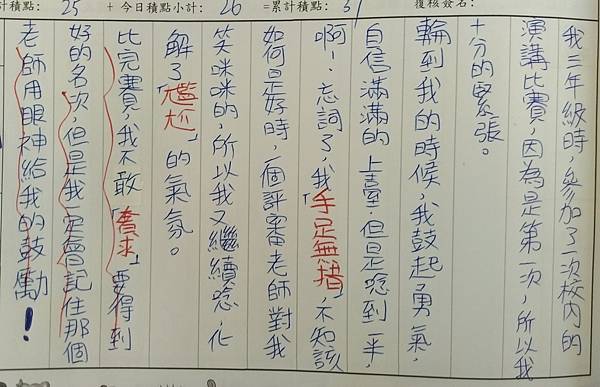 計積點： 25 + 今日積點小計： 26 =累計積點： 51 覆核簽名：
我三年級時，參加了一次校內的
演講比賽，因為是第一次，所以我
十分的緊張。
輪到我的時候，我鼓起勇氣，
自信滿滿的上臺，但是唸到一半，
啊！忘詞了，我「手足無措」，不知該
如何是好時，一個評審老師對我
笑咪咪的，所以我又繼續唸，化
解了「尷尬」的氣氛。
比完賽，我不敢「奢求」要得到
好的名次，但是我一定會記住那個
老師用眼神給我的鼓勵！